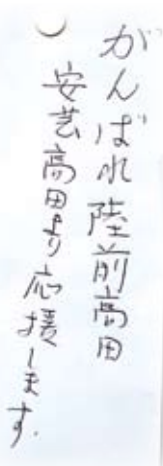 がんばれ陸前高田
安芸高田より応援します.